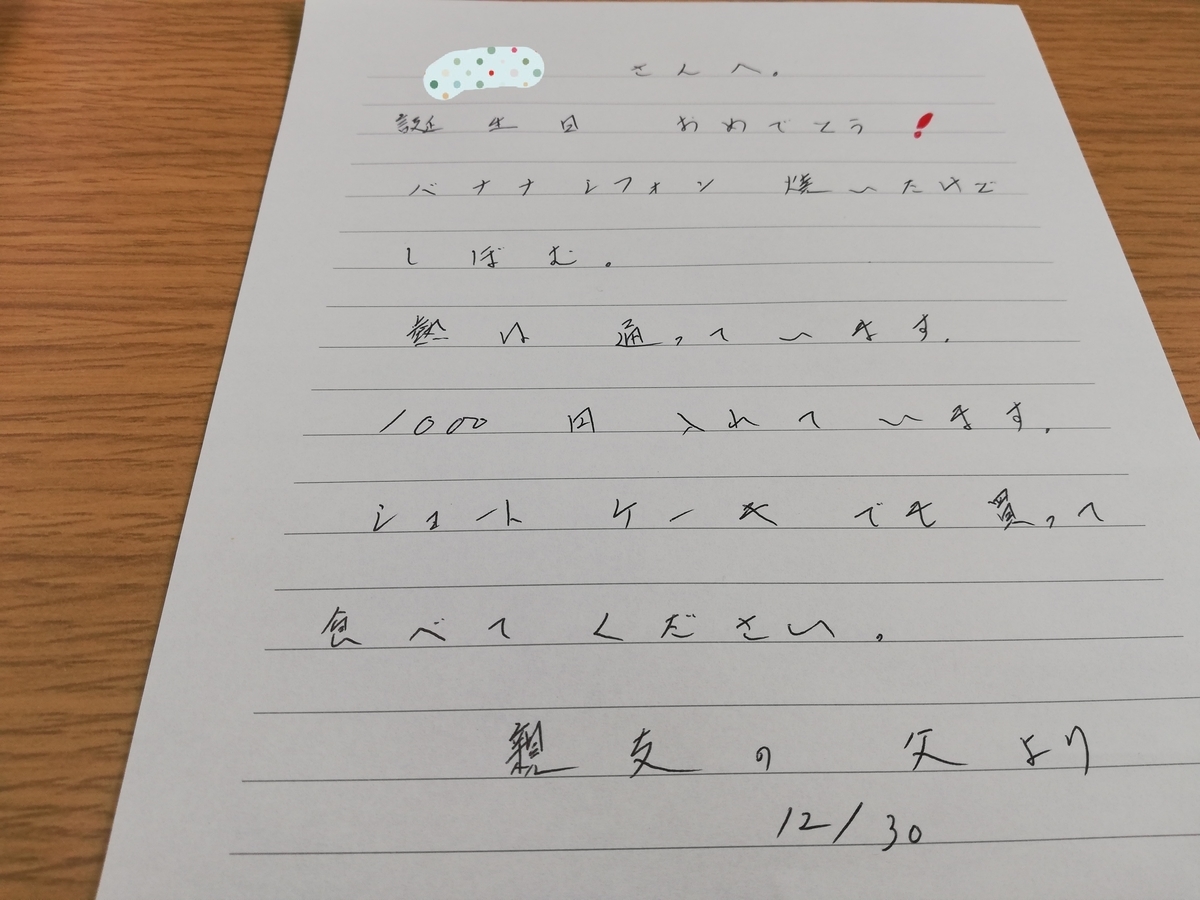 さんへ。
誕生日 おめでとう!
バナナシフォン 焼いたけど
しぼむ。
熱は 通っています.
1000 円 入れています.
ショート ケーキ でも 買って
食べて ください。
親友の 父より
12/30